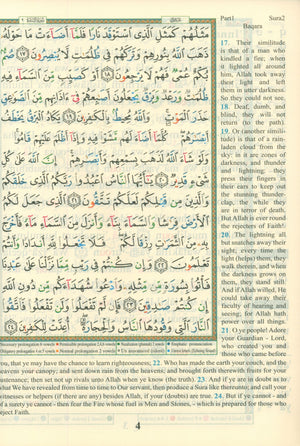 Part1 Sura2
Baqara
مَثَلُهُمْ كَمَثَلِ ٱلَّذِى ٱسْتَوْقَدَ نَارًا فَلَمَّآ أَضَآءَتْ مَا حَوْلَهُۥ
ذَهَبَ ٱللَّهُ بِنُورِهِمْ وَتَرَكَهُمْ فِى ظُلُمَٰتٍ لَّا يُبْصِرُونَ ١٧ صُمٌّۢ
بُكْمٌ عُمْىٌ فَهُمْ لَا يَرْجِعُونَ ١٨ أَوْ كَصَيِّبٍ مِّنَ ٱلسَّمَآءِ فِيهِ
ظُلُمَٰتٌ وَرَعْدٌ وَبَرْقٌ يَجْعَلُونَ أَصَٰبِعَهُمْ فِىٓ ءَاذَانِهِم مِّنَ ٱلصَّوَٰعِقِ
حَذَرَ ٱلْمَوْتِ وَٱللَّهُ مُحِيطٌۢ بِٱلْكَٰفِرِينَ ١٩ يَكَادُ ٱلْبَرْقُ يَخْطَفُ
أَبْصَٰرَهُمْ كُلَّمَآ أَضَآءَ لَهُم مَّشَوْا۟ فِيهِ وَإِذَآ أَظْلَمَ عَلَيْهِمْ قَامُوا۟
وَلَوْ شَآءَ ٱللَّهُ لَذَهَبَ بِسَمْعِهِمْ وَأَبْصَٰرِهِمْ إِنَّ ٱللَّهَ عَلَىٰ كُلِّ
شَىْءٍ قَدِيرٌ ٢٠ يَٰٓأَيُّهَا ٱلنَّاسُ ٱعْبُدُوا۟ رَبَّكُمُ ٱلَّذِى خَلَقَكُمْ
وَٱلَّذِينَ مِن قَبْلِكُمْ لَعَلَّكُمْ تَتَّقُونَ ٢١ ٱلَّذِى جَعَلَ لَكُمُ
ٱلْأَرْضَ فِرَٰشًا وَٱلسَّمَآءَ بِنَآءً وَأَنزَلَ مِنَ ٱلسَّمَآءِ مَآءً فَأَخْرَجَ
بِهِۦ مِنَ ٱلثَّمَرَٰتِ رِزْقًا لَّكُمْ فَلَا تَجْعَلُوا۟ لِلَّهِ أَندَادًا وَأَنتُمْ
تَعْلَمُونَ ٢٢ وَإِن كُنتُمْ فِى رَيْبٍ مِّمَّا نَزَّلْنَا عَلَىٰ عَبْدِنَا
فَأْتُوا۟ بِسُورَةٍ مِّن مِّثْلِهِۦ وَٱدْعُوا۟ شُهَدَآءَكُم مِّن دُونِ ٱللَّهِ
إِن كُنتُمْ صَٰدِقِينَ ٢٣ فَإِن لَّمْ تَفْعَلُوا۟ وَلَن تَفْعَلُوا۟ فَٱتَّقُوا۟
ٱلنَّارَ ٱلَّتِى وَقُودُهَا ٱلنَّاسُ وَٱلْحِجَارَةُ أُعِدَّتْ لِلْكَٰفِرِينَ ٢٤
17. Their similitude
is that of a man who
kindled a fire; when
it lighted all around
him, Allah took away
their light and left
them in utter darkness.
So they could not see.
18. Deaf, dumb, and
blind, they will not
return (to the path).
19. Or (another similitude)
is that of a rain-
laden cloud from the
sky: in it are zones of
darkness, and thunder
and lightning: they
press their fingers in
their ears to keep out
the stunning thunder-
clap, the while they
are in terror of death.
But Allah is ever round
the rejecters of Faith!
20. The lightning all
but snatches away their
sight; every time the
light (helps) them, they
walk therein, and when
the darkness grows on
them, they stand still.
And if Allah willed, He
could take away their
faculty of hearing and
seeing; for Allah hath
power over all things.
21. O ye people! Adore
your Guardian - Lord,
who created you and
those who came before
you, that ye may have the chance to learn righteousness; 22. Who has made the earth your couch, and the
heavens your canopy; and sent down rain from the heavens; and brought forth therewith fruits for your
sustenance; then set not up rivals unto Allah when ye know (the truth) 23. And if ye are in doubt as to
what We have revealed from time to time to Our servant, then produce a Sura like thereunto; and call your
witnesses or helpers (if there are any) besides Allah, if your (doubts) are true. 24. But if ye cannot - and
of a surety ye cannot - then fear the Fire whose fuel is Men and Stones, - which is prepared for those who
reject Faith.
4